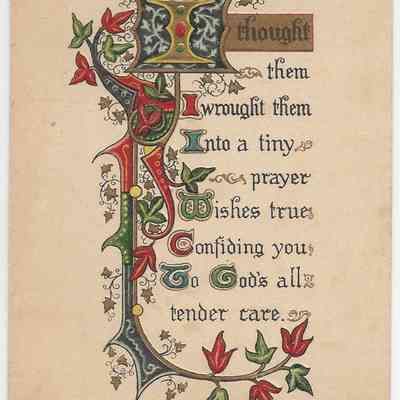 I thought
them
I wrought them
Into a tiny
prayer
Wishes true
Confiding you
To God's all
tender care.